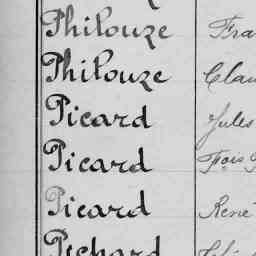 Philouze Fra
Philouze Clau
Picard Jules
Picard Fois
Picard René
Pechard